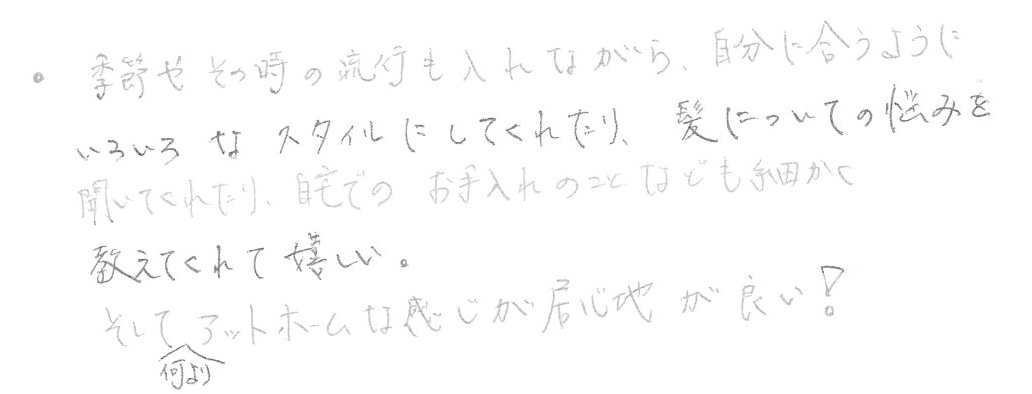 ・季節やその時の流行も入れながら、自分に合うように
いろいろなスタイルにしてくれたり、髪についての悩みを
聞いてくれたり、自宅でのお手入れのことなども細かく
教えてくれて嬉しい。
そして何よりアットホームな感じが居心地が良い!